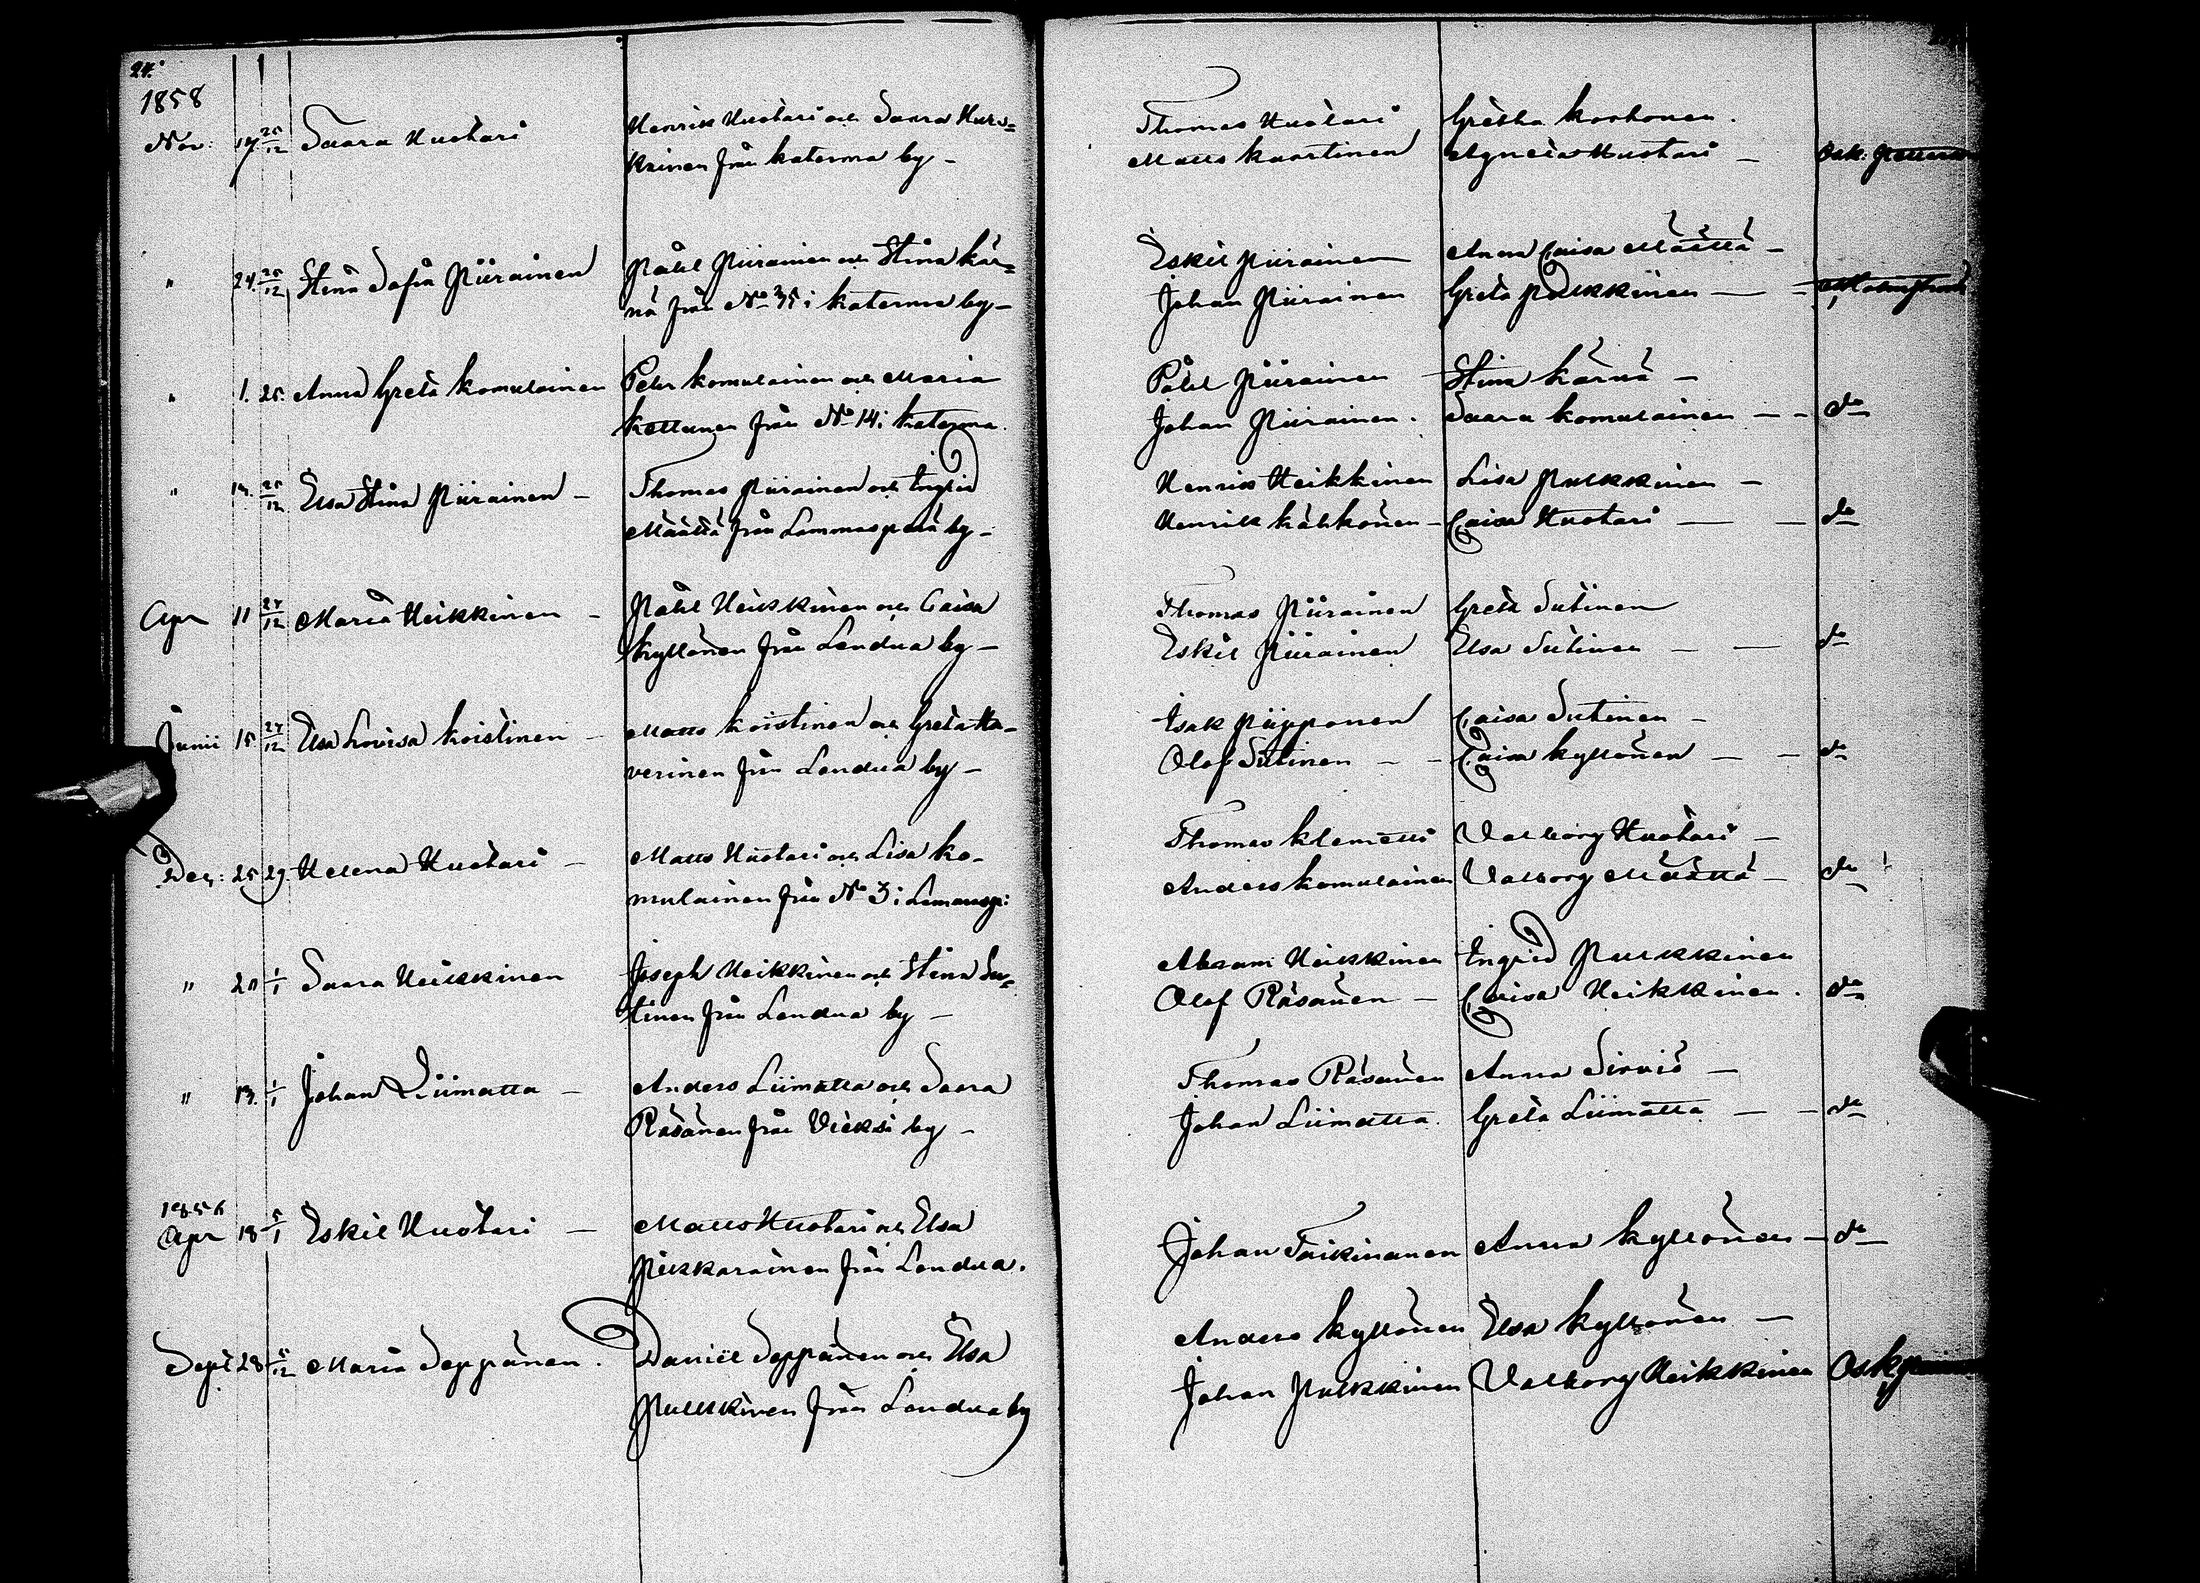 24.
1858
Nov: 17 25/12 Saara Huotari
Henrik Huotari och Saara Hurs=
kainen från Katerma by –
Thomas Huotari Gretha Korhonen.
Matts Kaartinen Agneta Huotari –
" 24. 25/12 Stina Sofia Piirainen
Påhl Piirainen och Stina Kär=
nä från No 35 i Katerma by –
Eskil Piirainen Anna Caisa Määttä –
Johan Piirainen Greta Pulkkinen –
" 1. 25. Anna Greta Komulainen
Petr Komulainen och Maria
Kettunen från No 14 i Katerma.
Påhl Piirainen Stina Kärnä –
Johan Piirainen. Saara Komulainen – – do
" 14. 25/12 Elsa Stina Piirainen –
Thomas Piirainen och Ingrid
Määttä från Lammaspérä by –
Henrik Heikkinen Lisa Pulkkinen –
Henrik Kähkönen – Caisa Huotari – – do
Apr 11 27/12 Maria Heikkinen –
Påhl Heikkinen och Caisa
Kyllönen från Lendua by –
Thomas Piirainen Greta Sutinen
Eskil Piirainen Elsa Sutinen – – do
Junii 15 27/12 Elsa Lovisa Koistinen –
Matts Koistinen och Greta Ha-
verinen från Lendua by –
Isak Piipponen Caisa Sutinen –
Olof Sutinen – – Caisa Kyllönen – – do
Dec: 25 29. Helena Huotari –
Matts Huotari och Lisa Ko-
mulainen från No 3 i Lamasp:
Thomas Klemetti Valborg Huotari –
Anders Komulainen Valborg Määttä – do
" 20 1/1 Saara Heikkinen
Joseph Heikkinen och Stina Su=
tinen från Lendua by –
Abram Heikkinen Ingrid Pulkkinen
Olof Räsänen – Caisa Heikkinen. do
" 13. 1/1 Johan Liimatta –
Anders Liimatta och Saara
Räsänen från Vieksi by –
Thomas Räsänen Anna Sirviö –
Johan Liimatta. Greta Liimatta – – do
1856
Apr 18 5/1 Eskil Huotari –
Matts Huotari och Elsa
Pikkarainen från Lendua.
Johan Taikinanen Anna Kyllönen – do
Sept 28 Maria Seppänen.
Daniel Seppänen och Elsa
Pulkkinen från Lendua by
Anders Kyllönen Elsa Kyllönen –
Johan Pulkkinen Valborg Heikkinen